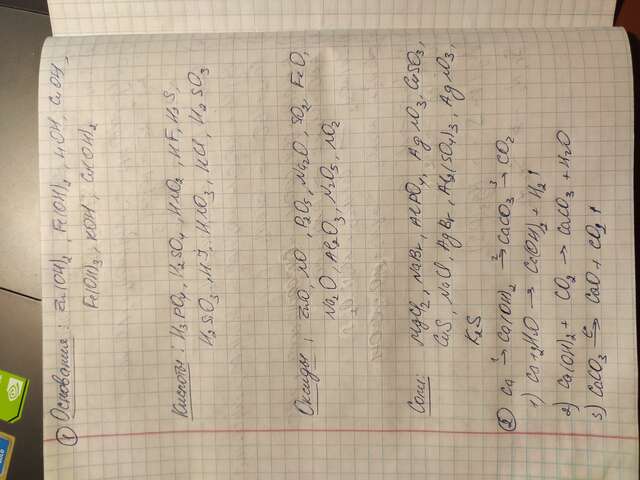 ① Основания: Zn(OH)2, Fe(OH)2, HOH, CuOH,
Fe(OH)3, KOH, Cu(OH)2
Кислоты: H3PO4, H2SO4, HNO2, HF, H2S,
H2SiO3, HJ, HNO3, HCl, H2SO3
Оксиды: ZnO, NO, P2O3, Na2O, SO2, FeO,
Na2O, Al2O3, N2O5, NO2
Соли: MgCl2, NaBr, AlPO4, AgNO3, CuSO3,
CuS, NaCl, AgBr, Al2(SO4)3, AgNO3,
K2S
② Ca →1 Ca(OH)2 →2 CaCO3 →3 CO2
1) Ca+2H2O → Ca(OH)2 + H2↑
2) Ca(OH)2 + CO2 → CaCO3 + H2O
3) CaCO3 → CaO + CO2↑